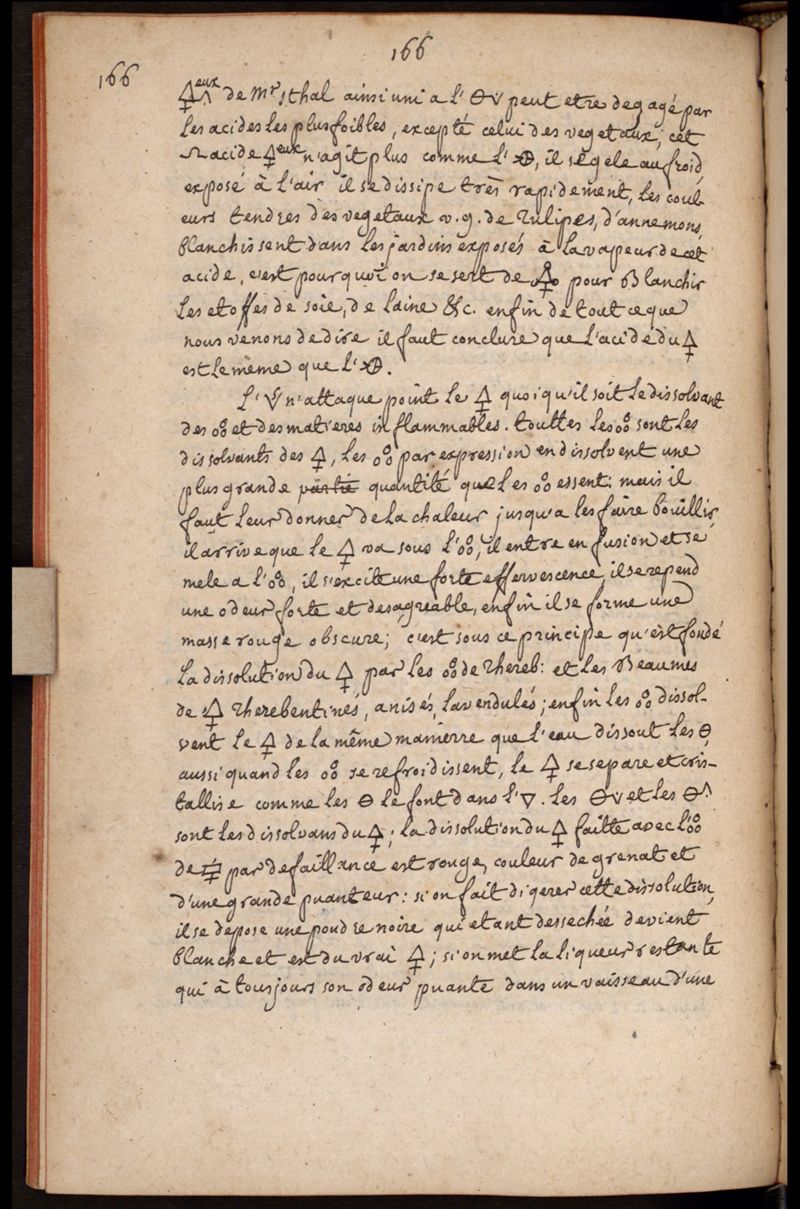 166
166
🜍eux de Mr. Sthal ainsi uni a l' 🜔 peut etre degagé par
Les acides Les plus foibles, excepté celui des vegetaux; cet
acide 🜍eux n'agit plus comme L' , il se gele au froid,
exposé à L'air il se dissipe très rapidement, Les coul-
eurs tendres des vegetaux v. g. de Tulipes, d'annemons,
blanchissent dans Les jardins exposés à La vapeur de cet
acide, c'est pourquoi on se sert de pour Blanchir
Les etoffes de soie, de laine &c. enfin de tout ce que
nous venons de dire il faut conclure que L'acide du 🜍
est Le meme que L' .
L' n'attaque point Le 🜍 quoiqu'il soit Le dissolvant
des o8o et des matieres inflammables. touttes Les o8o sont Les
dissolvants des 🜍, Les o8o par expression en dissolvent une
plus grande partie quantité que Les o8o essent: mais il
faut Leur donner de La chaleur jusqu'a les faire bouillir,
il arrive que Le 🜍 va sous L'o8o, il entre en fusion et se
mele a L'o8o, il s'excite une forte effervescence, il se repend
une odeur forte et desagreable, enfin il se forme une
masse rouge obscure; c'est sous ce principe qu'est fondé
La dissolution du 🜍 par Les o8o de Thereb: et Les Beaumes
de 🜍 Therebentinés, anisés, Lavendulés; enfin Les o8o dissol-
vent Le 🜍 de la même manierre que L'eau dissout Les 🜔,
aussi quand Les o8o se refroidissent, Le 🜍 se separe et cris-
tallise comme Les 🜔 Le font dans L'🜄. Les et Les
sont Les dissolvans du 🜍; La dissolution du 🜍 faitte avec L'o8o
de par defaillance est rouge, couleur de grenat et
d'une grande puanteur: si on fait digerer cette dissolution,
il se depose une poudre noire qui etant dessechée devient
blanche et est du vrai 🜍; si on met La Liqueur restante
qui à tousjours son odeur puante dans un vaisseau d'une